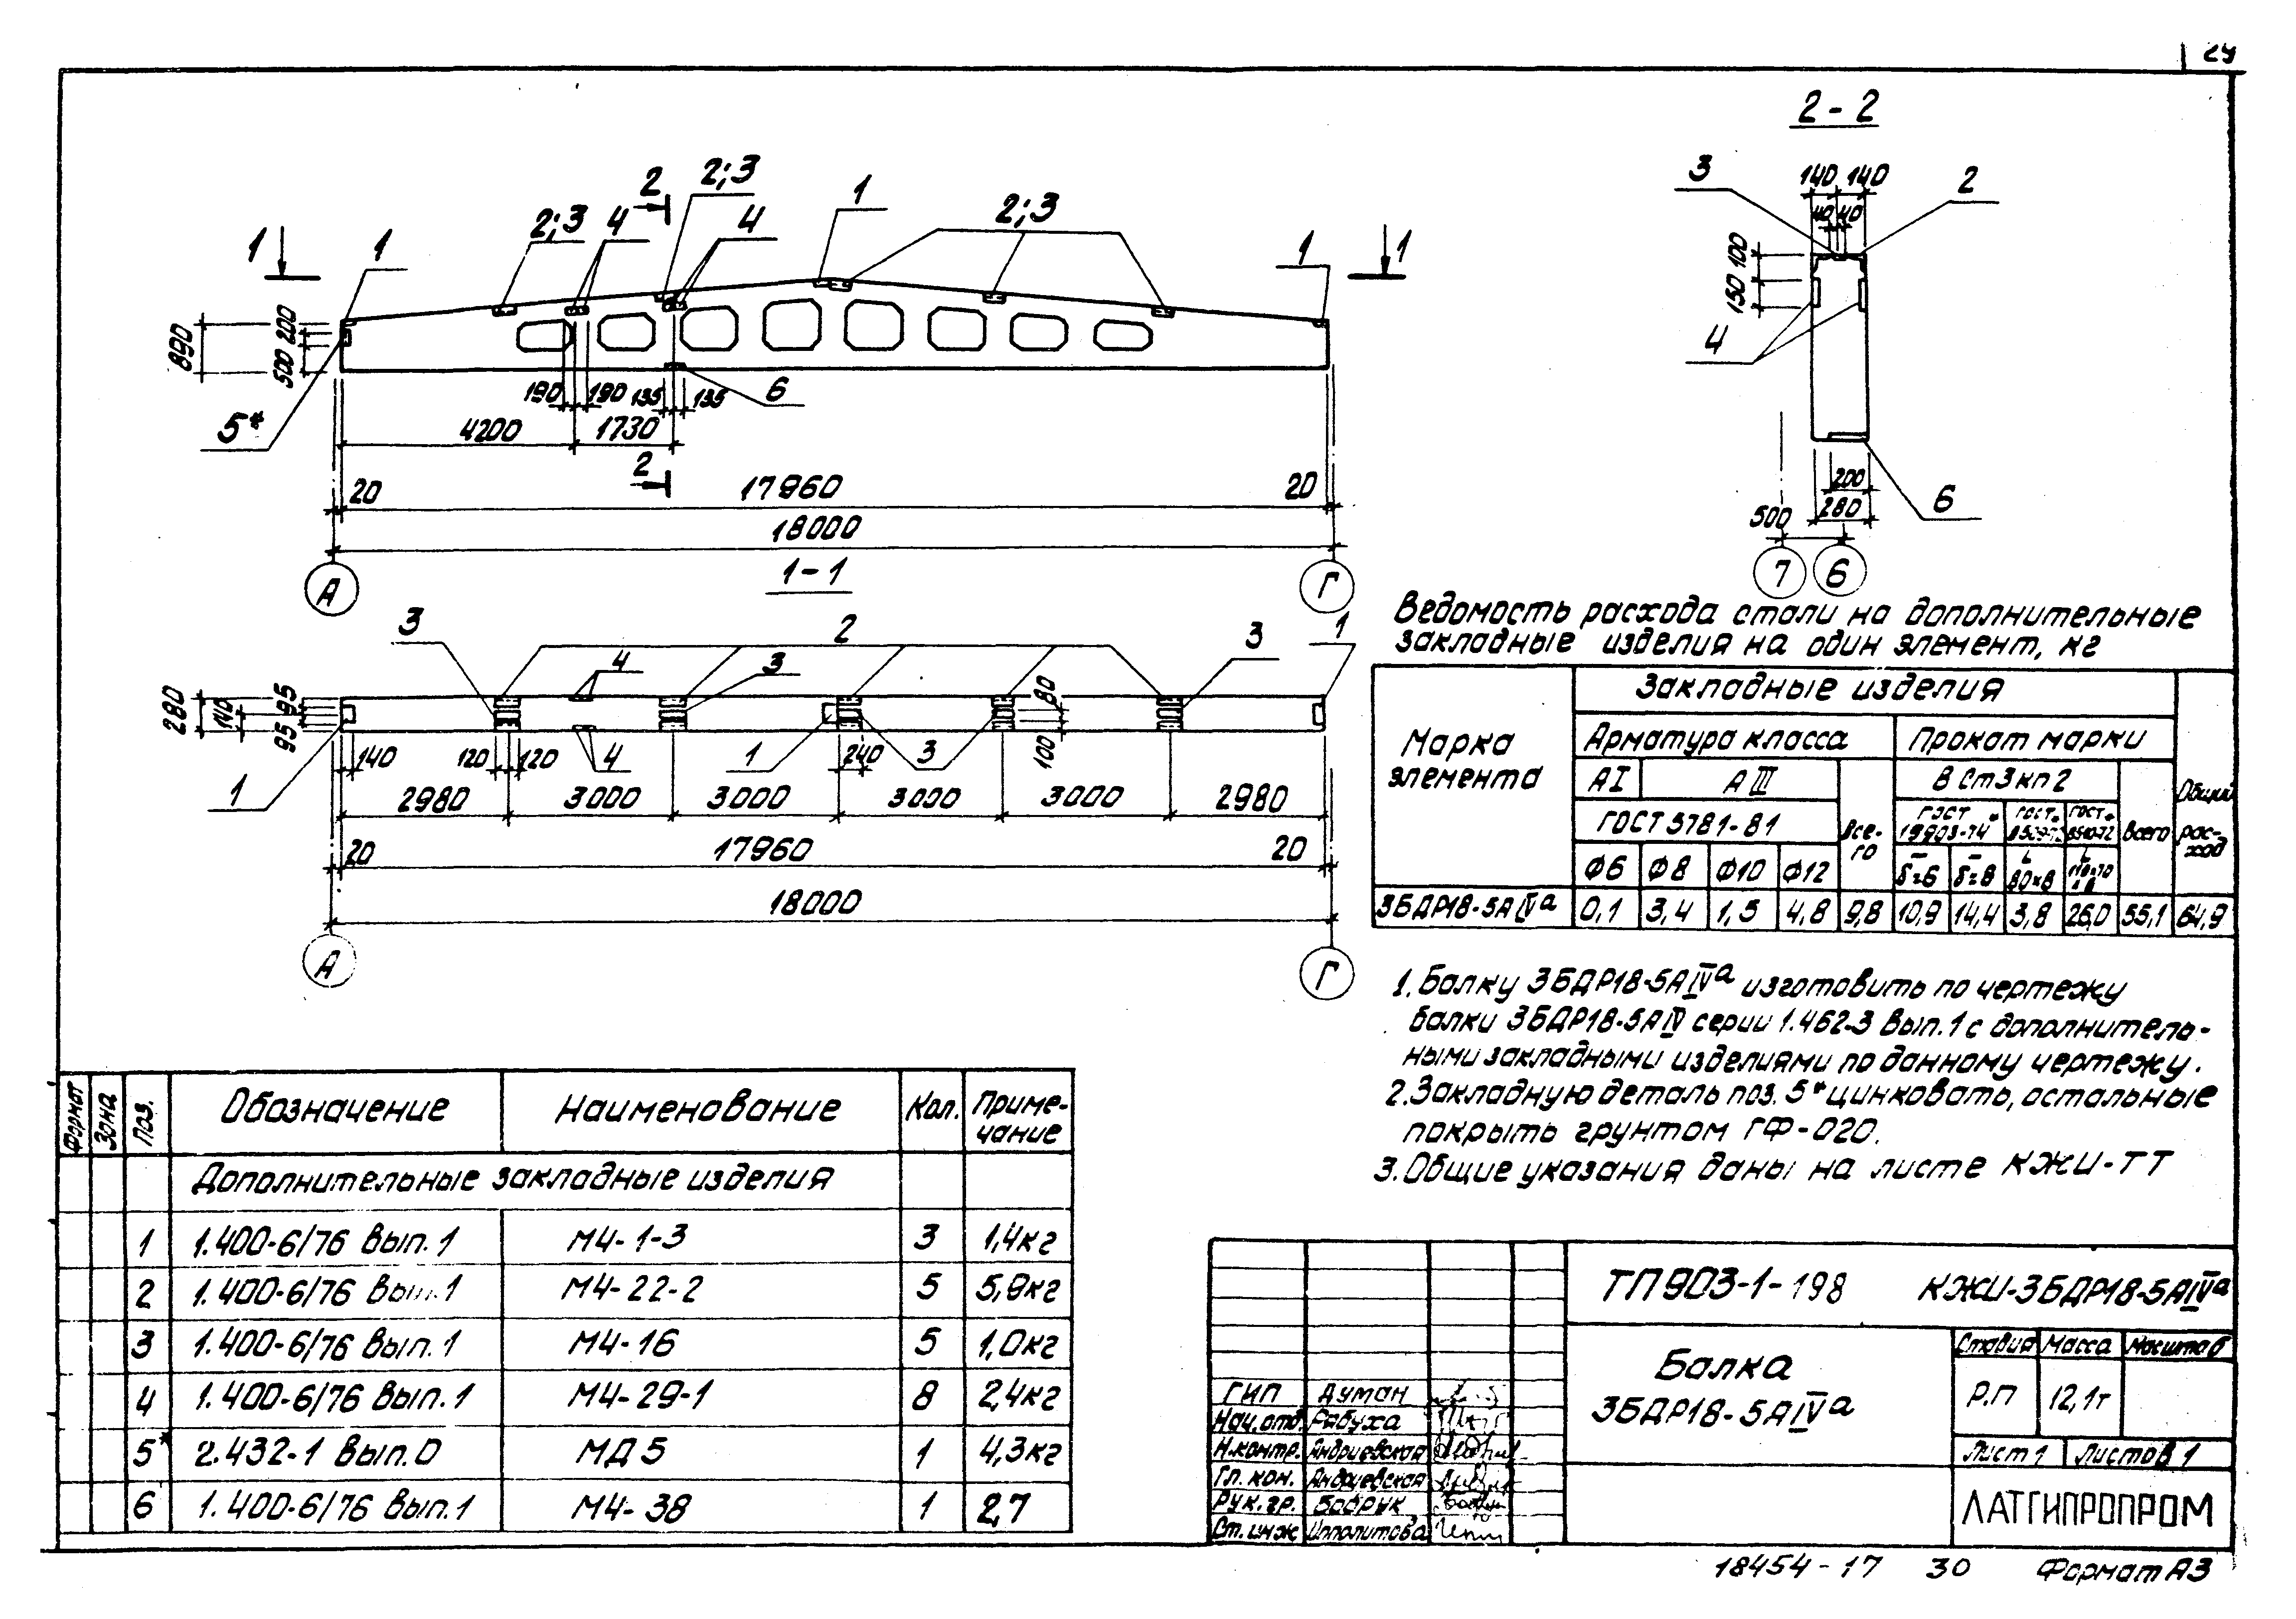 24
2 - 2
2
2;3
1
2;3
4
4
2;3
1
1
1
1
3
140
140
2
40
40
100
150
4
890
200
500
5*
190
190
135
135
6
4200
1730
2
20
17960
20
18000
А
Г
200
280
500
6
7
6
1-1
3
2
3
3
1
4
280
140
95
95
80
100
1
140
120
120
4
1
240
3
2980
3000
3000
3000
3000
2980
20
17960
20
18000
А
Г
Ведомость расхода стали на дополнительные
закладные изделия на один элемент, кг
Марка элемента
Закладные изделия
Общий расход
Арматура класса
Прокат марки
АI
АIII
Все-го
В Ст3кп2
Всего
ГОСТ 5781-81
ГОСТ 19903-74*
ГОСТ 8509-72
ГОСТ 8510-72
Ф6
Ф8
Ф10
Ф12
δ=6
δ=8
80×8
3БДР18-5АIVа
0,1
3,4
1,5
4,8
9,8
10,9
14,4
3,8
26,0
55,1
64,9
1. Балку 3БДР18-5АIVа изготовить по чертежу
балки 3БДР18-5АIV серии 1.462-3 вып.1 с дополнитель-
ными закладными изделиями по данному чертежу.
2. Закладную деталь поз. 5* цинковать, остальные
покрыть грунтом ГФ-020.
3. Общие указания даны на листе КЖИ-ТТ
Формат
Зона
Поз.
Обозначение
Наименование
Кол.
Приме-чание
Дополнительные закладные изделия
1 1.400-6/76 Вып.1 М4-1-3 3 1,4кг
2 1.400-6/76 Вып.1 М4-22-2 5 5,9кг
3 1.400-6/76 Вып.1 М4-16 5 1,0кг
4 1.400-6/76 Вып.1 М4-29-1 8 2,4кг
5* 2.432-1 Вып.0 МД5 1 4,3кг
6 1.400-6/76 Вып.1 М4-38 1 2,7
ТП903-1-198 КЖИ-3БДР18-5АIVа
Балка
3БДР18-5АIVа
Стадия Масса Масштаб
Р.П 12,1т
Лист 1 Листов 1
ЛАТГИПРОПРОМ
ГИП Думан
Нач.отд. Рябуха
Н.контр. Андриевская
Гл. кон. Андриевская
Рук.гр. Бобрук
Ст.инж Ипполитова
18454-17 30 Формат А3